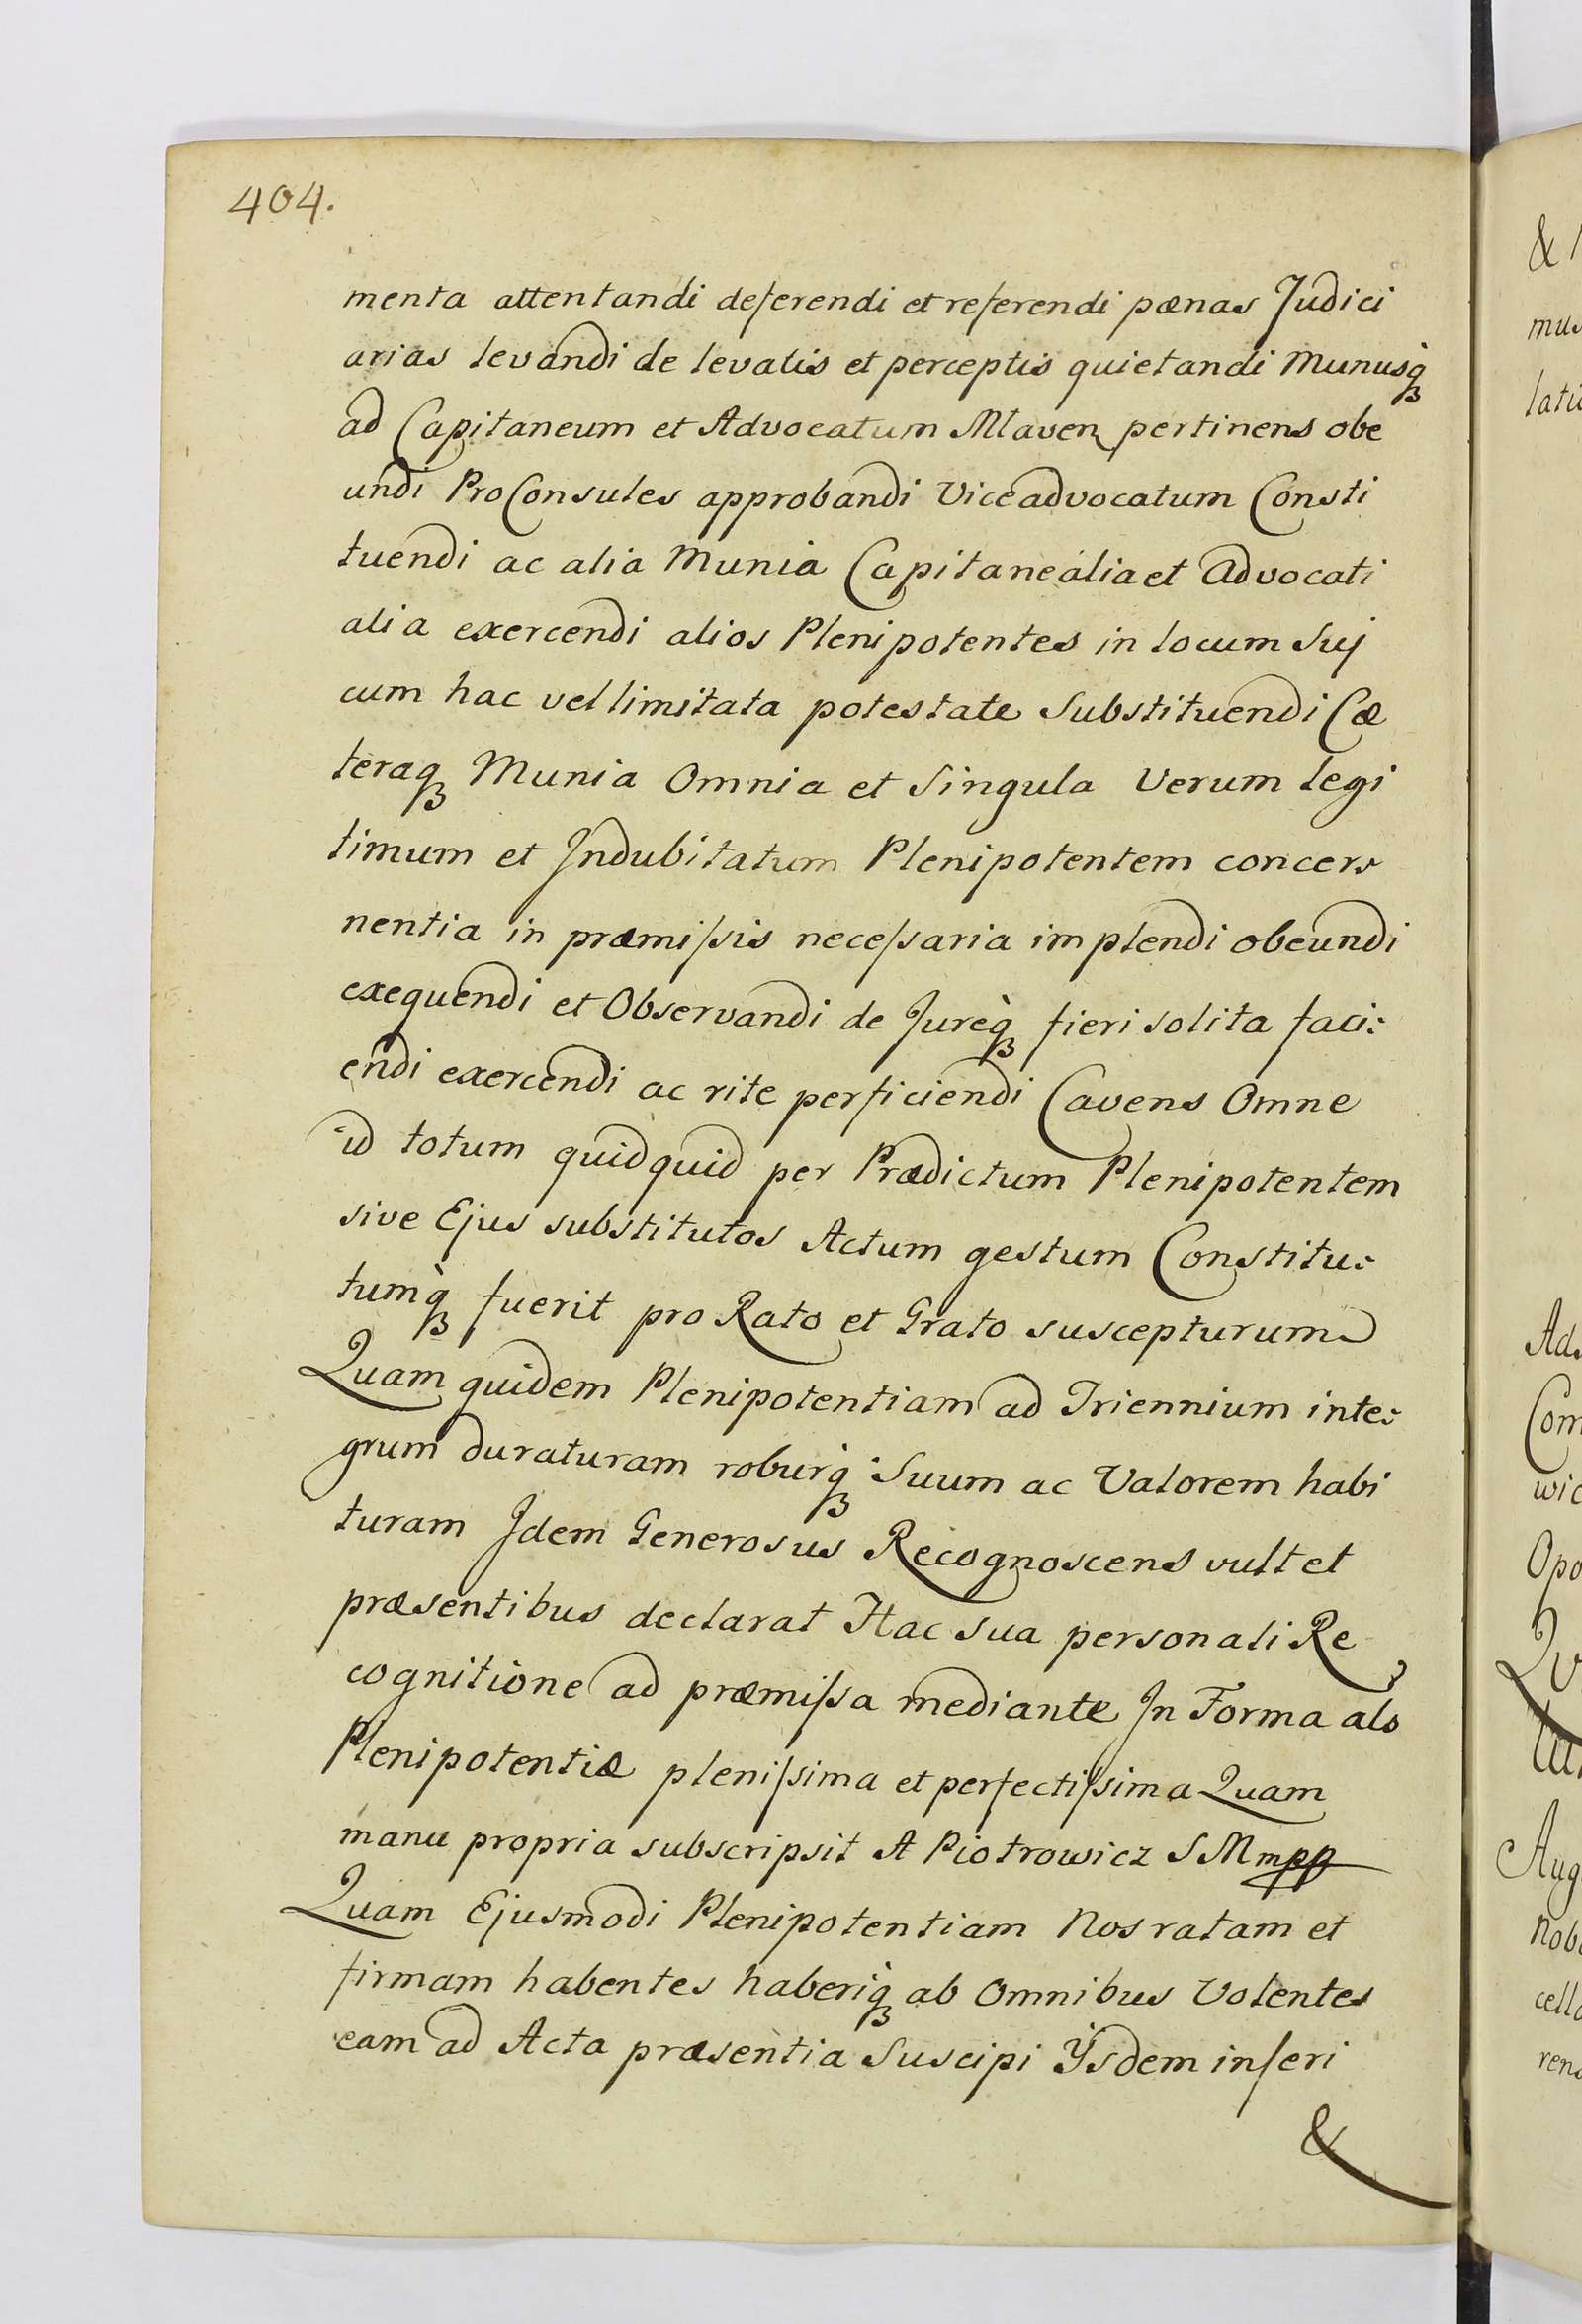 404.
menta attentandi deferendi et referendi pænas Judici
arias levandi de levatis et perceptis quietandi Munusq́ꝫ
ad Capitaneum et Advocatum Mlaven pertinens obe
undi ProConsules approbandi Viceadvocatum Consti
tuendi ac alia Munia Capitanealia et Advocati
alia exercendi alios Plenipotentes in locum Sui
cum hac vel limitata potestate Substituendi Cæ
teraqꝫ Munia Omnia et Singula Verum legi
timum et Indubitatum Plenipotentem concer
nentia in præmissis necessaria implendi obeundi
exequendi et Observandi de Jureqꝫ fieri solita faci:
endi exercendi ac rite perficiendi Cavens Omne
id totum quidquid per Prædictum Plenipotentem
sive Ejus substitutos Actum gestum Constitu:
tumqꝫ fuerit pro Rato et Grato suscepturum
Quam quidem Plenipotentiam ad Triennium inte:
grum duraturam roburqꝫ Suum ac Valorem habi
turam Idem Generosus Recognoscens vult et
præsentibus declarat Hac sua personali Re
cognitione ad præmissa mediante In Forma als
Plenipotentiæ plenissima et perfectissima Quam
manu propria subscripsit A Piotrowicz S M mpp
Quam Ejusmodi Plenipotentiam Nos ratam et
firmam habentes haberiqꝫ ab Omnibus Volentes
eam ad Acta præsentia Suscipi Ÿsdem inseri
&